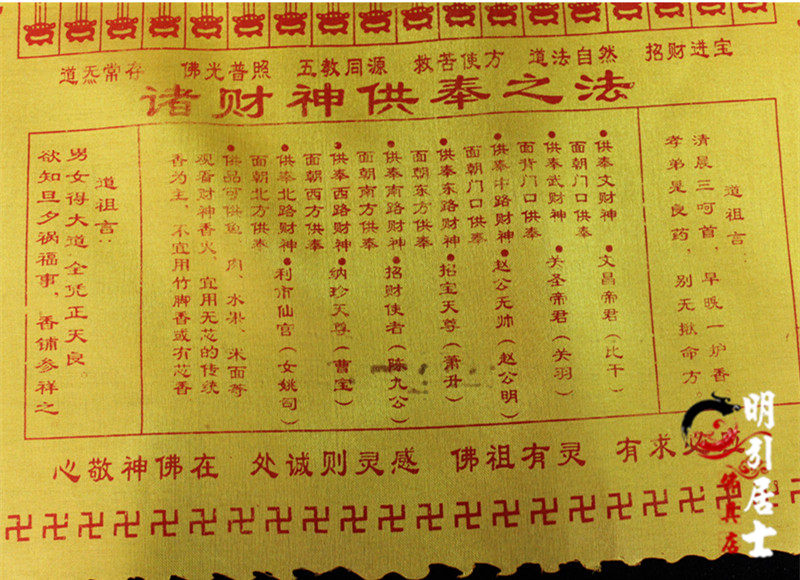 道炁常存 佛光普照 五教同源 救苦使方 道法自然 招财进宝
诸财神供奉之法
道祖言:
清晨三呵首,早晚一炉香
孝弟是良药,别无揪命方
●供奉文财神●文昌帝君(比干)
面朝门口供奉
●供奉武财神●关圣帝君(关羽)
面背门口供奉
●供奉中路财神●赵公无帅(赵公明)
面朝门口供奉
●供奉东路财神●招宝天尊(萧升)
面朝东方供奉
●供奉南路财神●招财使者(陈九公)
面朝南方供奉
●供奉西路财神●纳珍天尊(曹宝)
面朝西方供奉
●供奉北路财神●利市仙官(女姚司)
面朝北方供奉
●供品可供鱼、肉、水果、米面等
观看财神香火,宜用无芯的传统
香为主,不宜用竹脚香或有芯香
道祖言:
男女得大道,全凭正天良。
欲知旦夕祸福事,香铺参祥之
心敬神佛在 处诚则灵感 佛祖有灵 有求必
明引居士